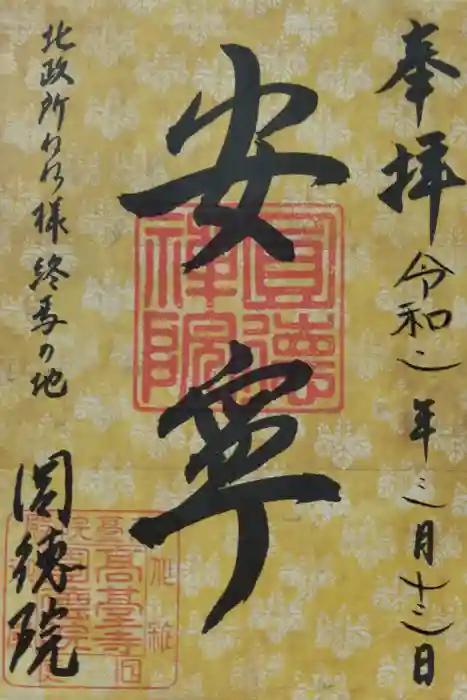 奉拝 令和二年三月十三日
安寧
北政所ねね様 終焉の地
圓徳院
圓徳禅院
高臺寺